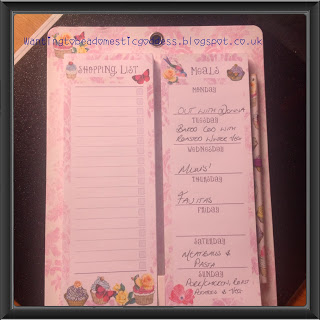 Wantingtobeadomesticgoddess.blogspot.co.uk
SHOPPING LIST
MEALS
MONDAY
OUT WITH DONNA
TUESDAY
BAKED COD WITH
ROASTED WINTER VEG
WEDNESDAY
MUMS!
THURSDAY
FAJITAS
FRIDAY
SATURDAY
MEATBALLS &
PASTA
SUNDAY
PORK/CHICKEN, ROAST
POTATOES & VEG